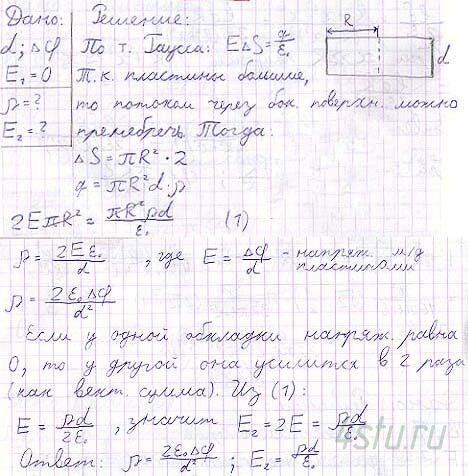 Дано: Решение:
d; Δφ По т. Гаусса: EΔS = q/ε₀
E₁ = 0 Т.к. пластины большие,
ρ = ? то потоком через бок. поверхн. можно
E₂ = ? пренебречь. Тогда:
R
d
ΔS = πR² · 2
q = πR²d · ρ
2EπR² = πR²ρd/ε₀ (1)
ρ = 2Eε₀/d , где E = Δφ/d - напряж. м/д пластинами
ρ = 2ε₀Δφ/d²
Если у одной обкладки напряж. равна
0, то у другой она усилится в 2 раза
(как вект. сумма). Из (1):
E = ρd/2ε₀ , значит E₂ = 2E = ρd/ε₀
Ответ: ρ = 2ε₀Δφ/d² ; E₂ = ρd/ε₀
4stu.ru